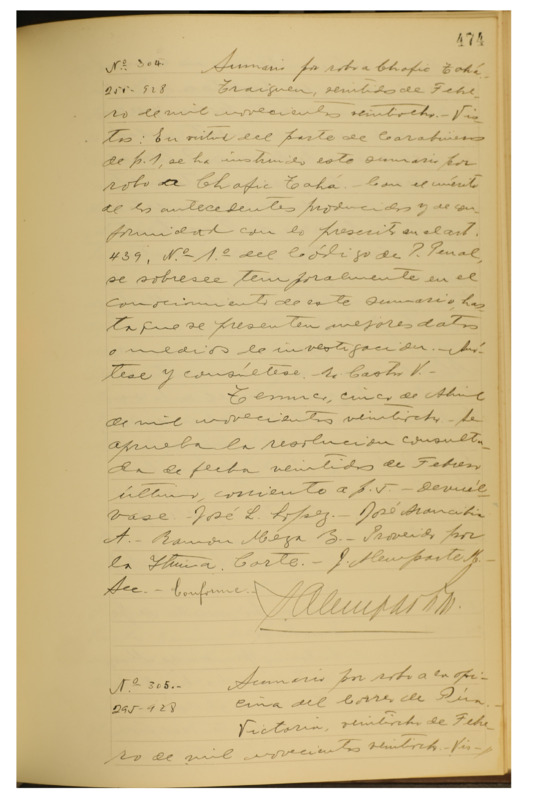 474
Nº 304. Sumario por robo a Chafic Tahá.
255-928 Traiguen, veintidos de Febre-
ro de mil novecientos veintiocho.- Vis-
tos: En virtud del parte de Carabineros
de p. 1, se ha instruido este sumario por
robo a Chafic Tahá.- Con el mérito
de los antecedentes producidos y de con
formidad con lo prescrito en el art.
439, Nº 1.º del Código de P. Penal,
se sobresee temporalmente en el
conocimiento de este sumario, has-
ta que se presenten mejores datos
o medios de investigacion.- Anó-
tese y consúltese. Castro V.-
Temuco, cinco de Abril
de mil novecientos veintiocho.- Se
aprueba la resolucion consulta-
da de fecha veintidos de Febrero
último, corriente a p. 5.- Devuél-
vase.- José L. Lopez.- José Arancibia
A.- Ramon Meza B.- Proveido por
la Iltma. Corte.- J. Alemparte
Sec.- Conforme.-
Nº 305.- Sumario por robo a la ofi-
295-928 cina del Correo de Púa.-
Victoria, veintiocho de Febre-
ro de mil novecientos veintiocho.- Vis-